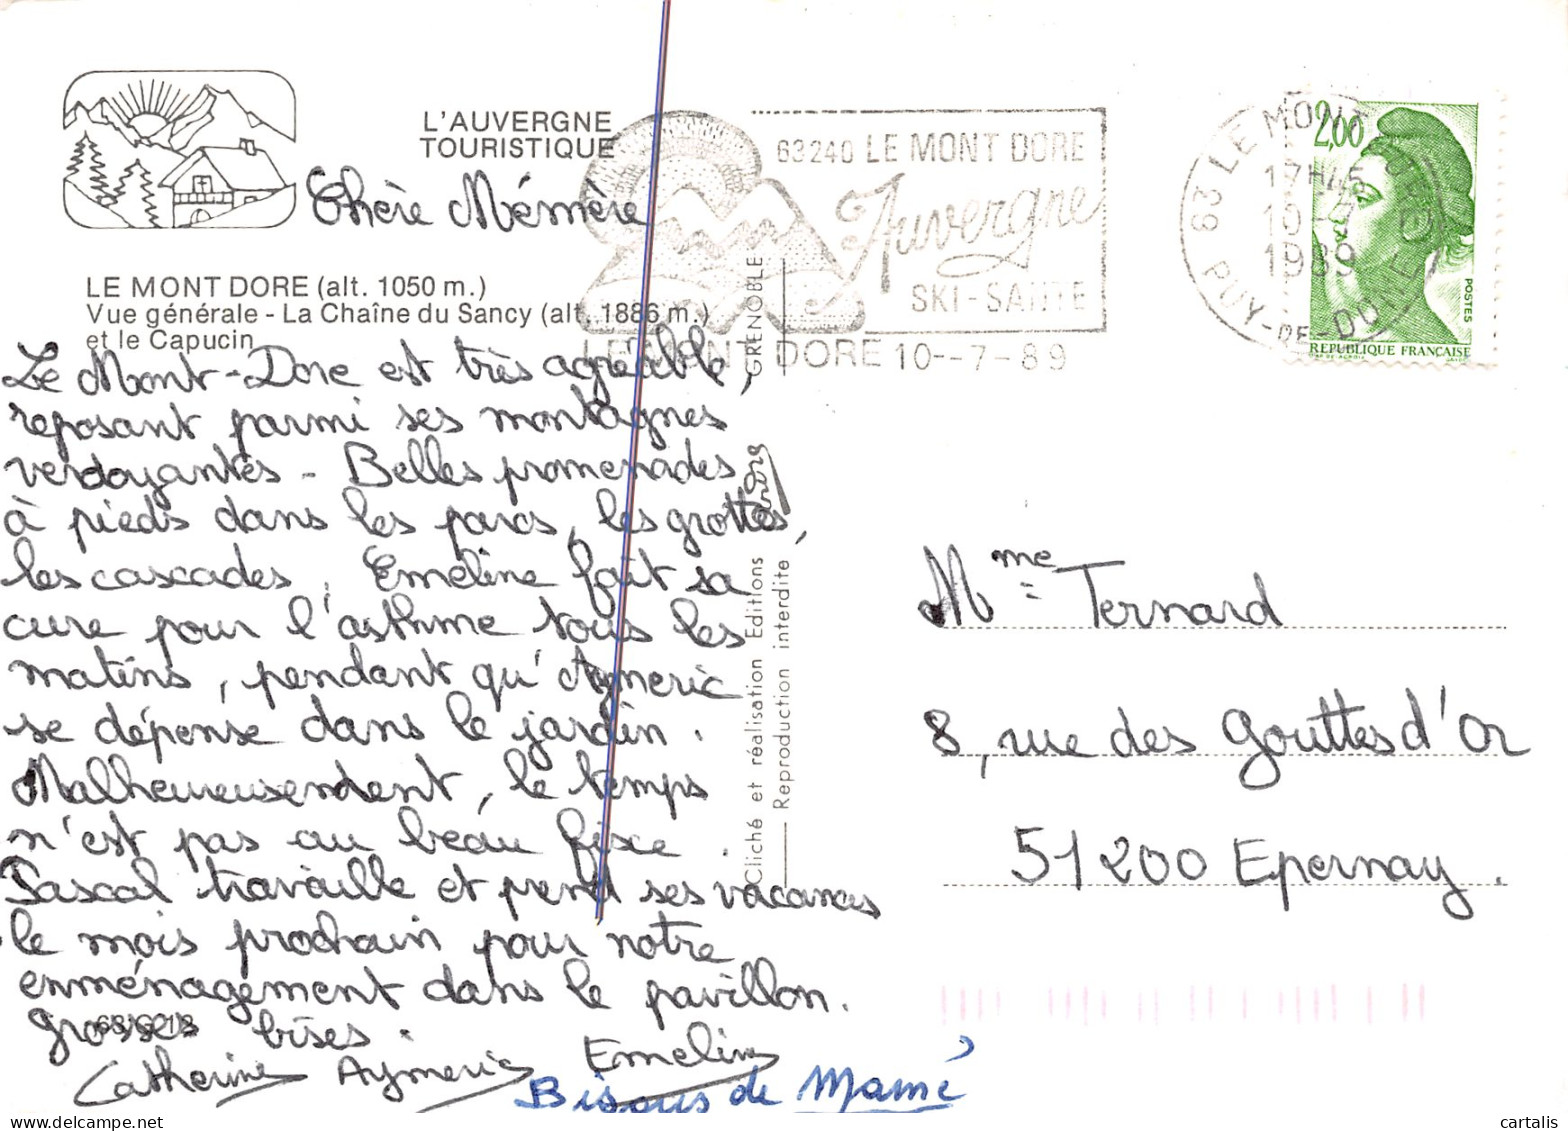 L'AUVERGNE
TOURISTIQUE
Chère Mémère
LE MONT DORE (alt. 1050 m.)
Vue générale - La Chaîne du Sancy (alt. 1886 m.)
et le Capucin
Le Mont-Dore est très agréable,
reposant parmi ses montagnes
verdoyantes - Belles promenades
à pieds dans les parcs, les grottes,
les cascades. Emeline fait sa
cure pour l'asthme tous les
matins, pendant qu'Aymeric
se dépense dans le jardin.
Malheureusendent, le temps
n'est pas au beau fixe.
Pascal travaille et prend ses vacances
le mois prochain pour notre
enménagement dans le pavillon.
Grosses bises.
Catherine Aymeric Emeline
Bisous de Mamé
63240 LE MONT DORE
Auvergne
SKI - SANTE
LE MONT DORE 10--7-89
GRENOBLE
Cliché et réalisation Editions
Reproduction interdite
63 LE MONT DORE
17H45
10 -7
1989
PUY-DE-DOME
2,00
POSTES
REPUBLIQUE FRANÇAISE
Mme Ternard
8, rue des Gouttes d'Or
51200 Epernay.
cartalis